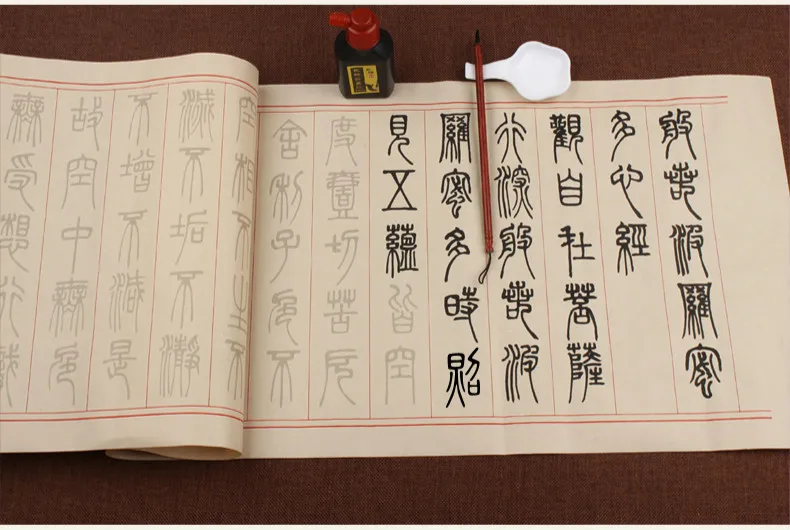 般若波羅蜜
多心經
觀自在菩薩
行深般若波
羅蜜多時照
見五蘊皆空
度壹切苦厄
舍利子色不
空相不生不
滅不垢不瀞
不增不減是
故空中無色
無受想行識